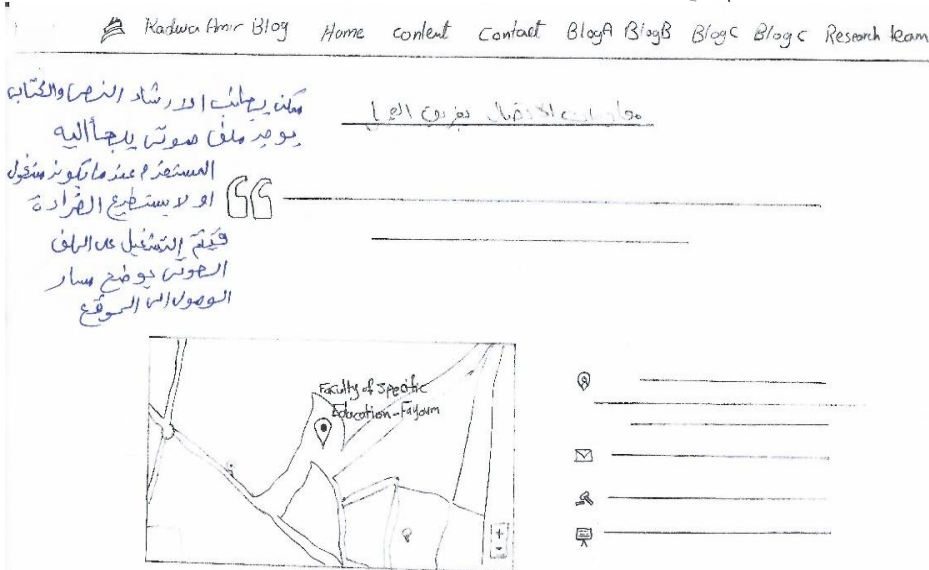 Radwa Amir Blog Home content Contact BlogA BlogB BlogC Blog c Research team
ممكن بجانب الارشاد النصى والكتابى
يوجد ملف صوتى يلجأ اليه
المستخدم عندما يكون مشغول
او لا يستطيع القراءة
فيتم التشغيل على الملف
الصوتى يوضح مسار
الوصول الى الموقع
معلومات الاتصال بفريق العمل
Faculty of Specific
Education-Fayoum